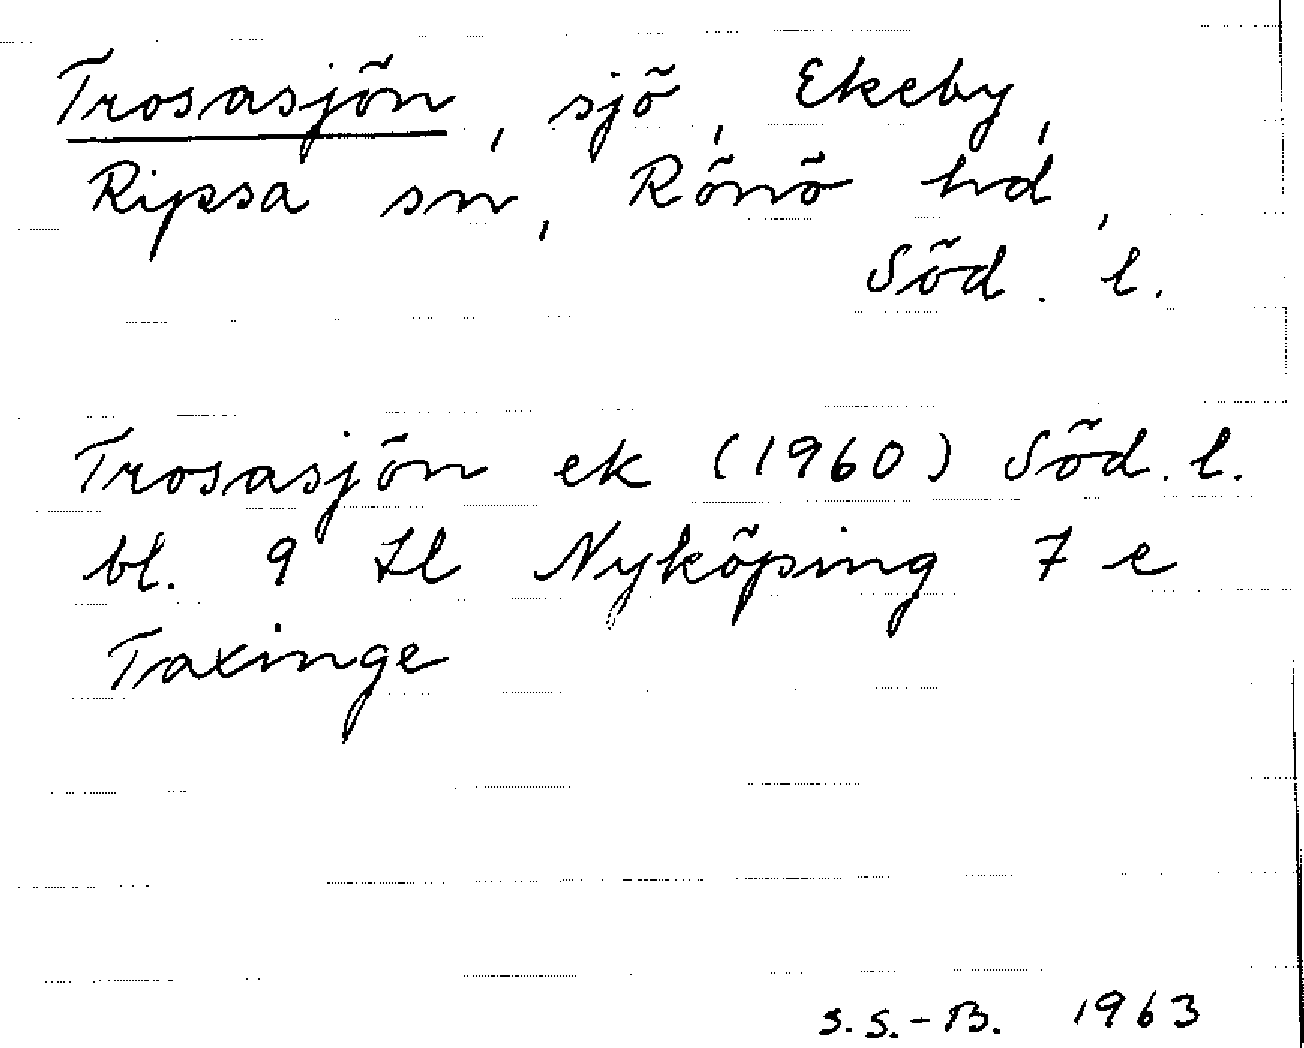 Trosasjön, sjö, Ekeby,
Ripsa sn, Rönö hd,
Söd. l.
Trosasjön ek (1960) Söd. l.
bl. 9 Il Nyköping 7 e
Taxinge
S.S.-B. 1963